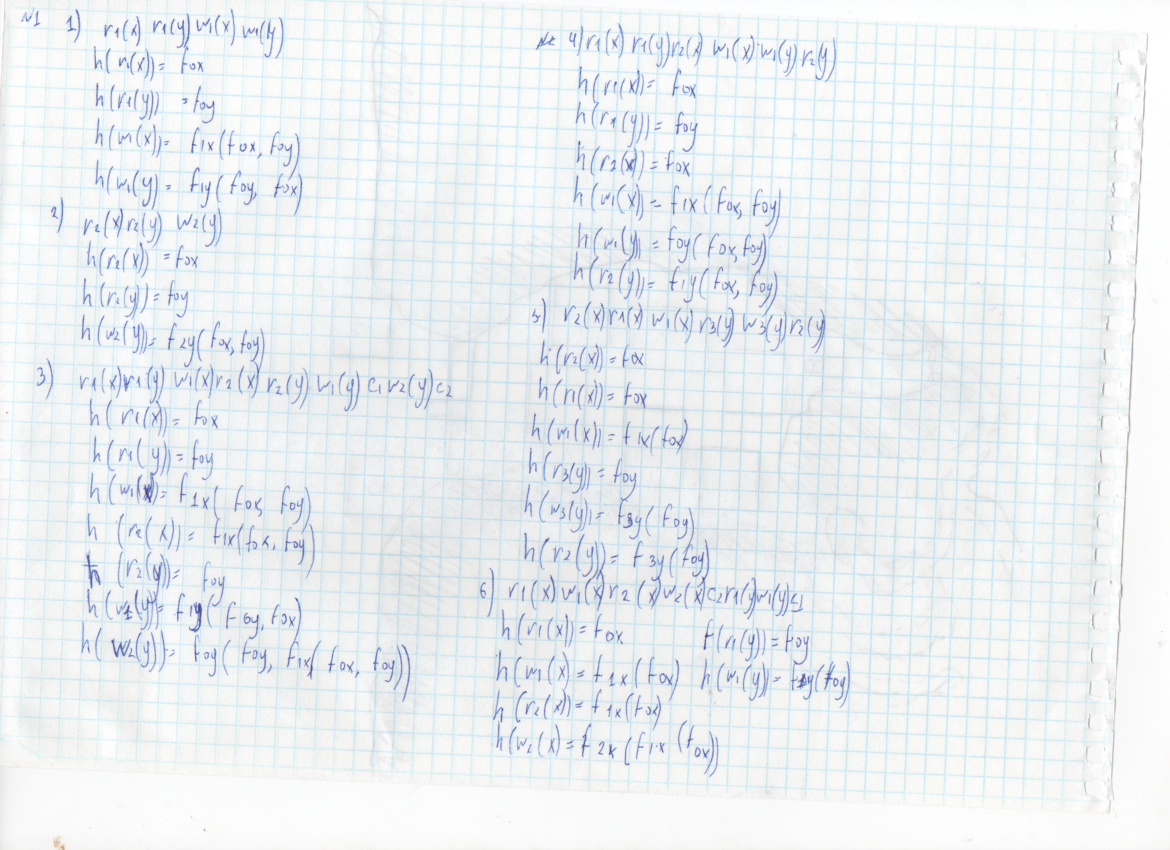 №1 1) r1(x) r1(y) w1(x) w1(y)
h(r1(x))= f0x
h(r1(y)) =f0y
h(w1(x))= f1x(f0x, f0y)
h(w1(y)= f1y(f0y, f0x)
2) r2(x)r2(y) w2(y)
h(r2(x)) =f0x
h(r2(y))=f0y
h(w2(y))= f2y(f0x,f0y)
3) r1(x)r1(y) w1(x)r2(x) r2(y) w1(y) c1 w2(y)c2
h(r1(x))= f0x
h(r1(y))= f0y
h(w1(x))= f1x(f0x, f0y)
h (r2(x))= f1x(f0x, f0y)
h (r2(y))= f0y
h(w1(y))= f1y(f0y, f0x)
h(w2(y))= f0y(f0y, f1x(f0x, f0y))
4) r1(x) r1(y) r2(x) w1(x) w1(y) r2(y)
h(r1(x))= f0x
h(r1(y))= f0y
h(r2(x))= f0x
h(w1(x))= f1x(f0x, f0y)
h(w1(y))= f0y(f0x,f0y)
h(r2(y))= f1y(f0x, f0y)
5) r2(x) r1(x) w1(x) r3(y) w3(y) r2(y)
h(r2(x))=f0x
h(r1(x))= f0x
h(w1(x))= f1x(f0x)
h(r3(y))= f0y
h(w3(y))= f3y(f0y)
h(r2(y))= f3y(f0y)
6) r1(x) w1(x) r2(x) w2(x)c2r1(y)w1(y)c1
h(r1(x))= f0x f(r1(y))=f0y
h(w1(x)= f1x(f0x) h(w1(y))= f1y(f0y)
h(r2(x))= f1x(f0x)
h(w2(x)= f2x(f1x(f0x))